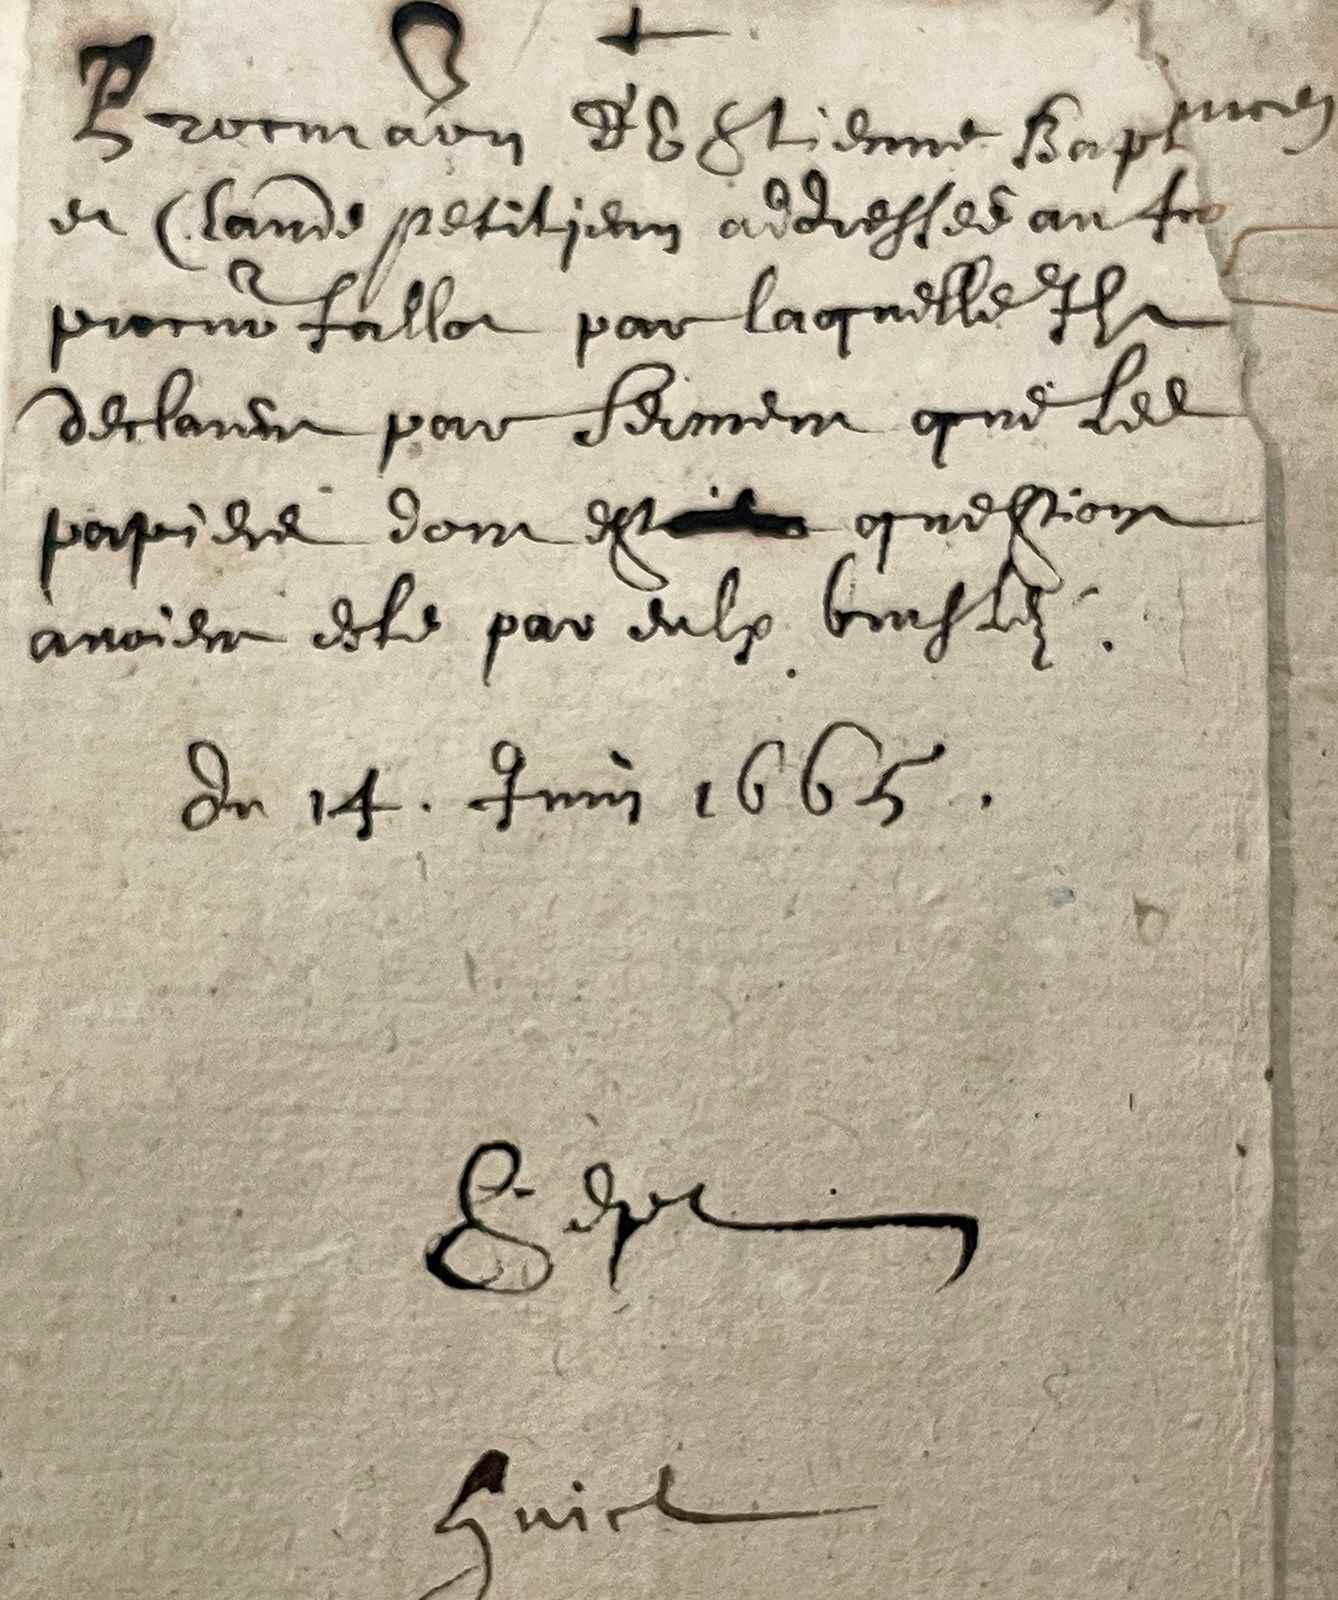 Procura͠on D'Estienne Bapt
et Claude petitjean addressée au Sr
procur͠ fallot par laquelle Ilz
declairent par serment que les
papiers dont est question
avoient esté par eulx bruslez.
Du 14. Juin 1665.